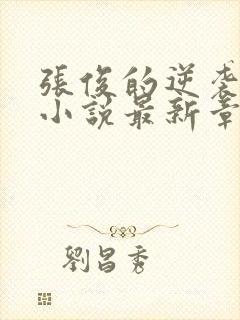 張俊的逆袭
小說最新章
劉昌秀